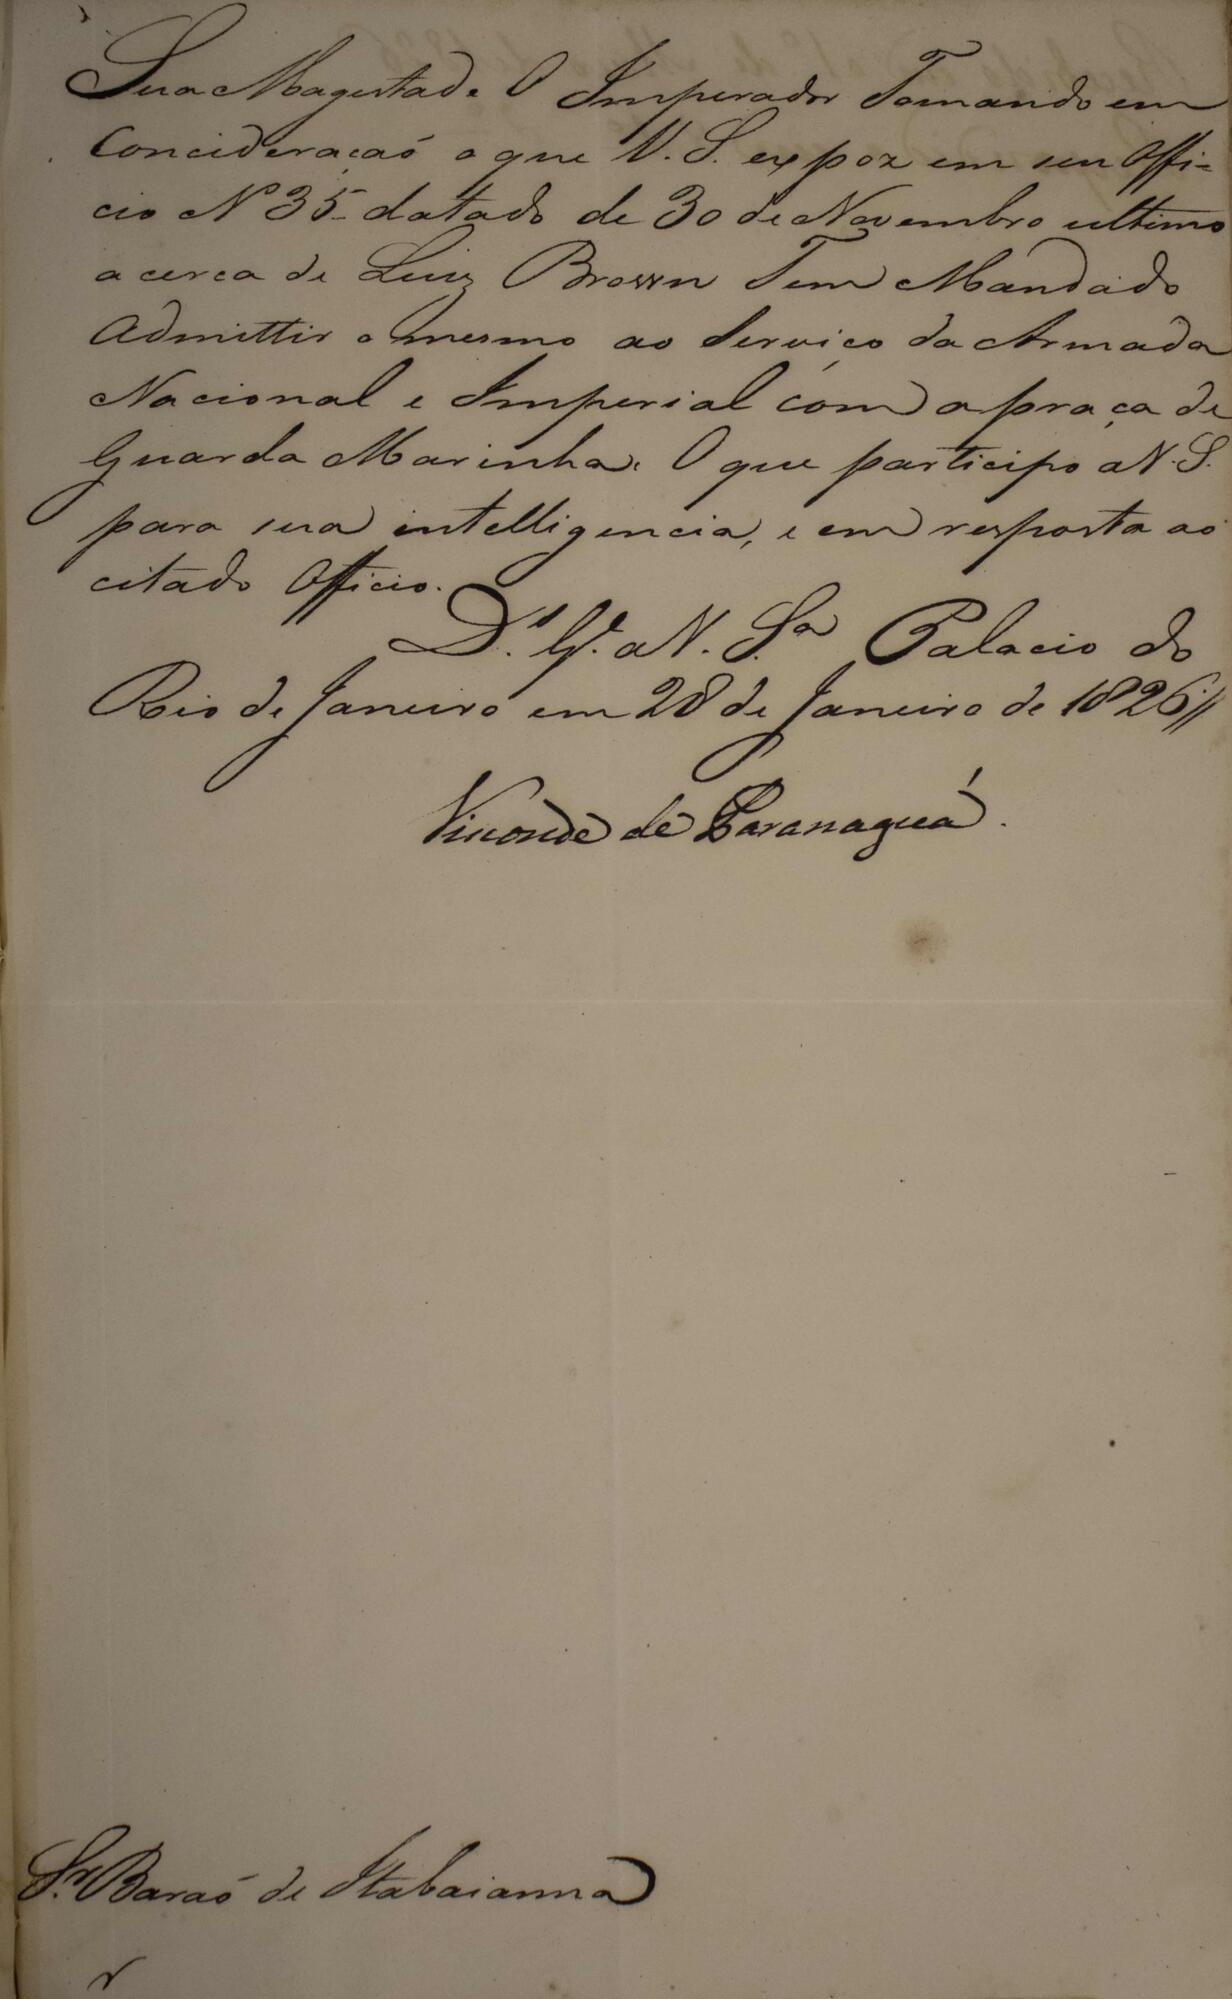 Sua Magestade O Imperador Tomando em
Concideraçaõ o que V. S. expoz em seu Offi-
cio Nº 35 datado de 30 de Novembro ultimo
a cerca de Luiz Brown Tem Mandado
Admittir o mesmo ao Serviço da Armada
Nacional e Imperial com a praça de
Guarda Marinha. O que participo a V. S.
para sua intelligencia, e em resposta ao
citado Officio.
D.s G.e a V. S.a Palacio do
Rio de Janeiro em 28 de Janeiro de 1826//
Visconde de Paranaguá.
Sr. Baraõ de Itabaianna